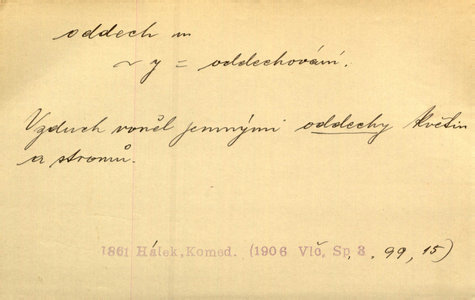 oddech m
~ y = oddechování.
Vzduch voněl jemnými oddechy květin
a stromů.
1861 Hálek, Komed. (1906 Vlč, Sp 3, 99, 15)